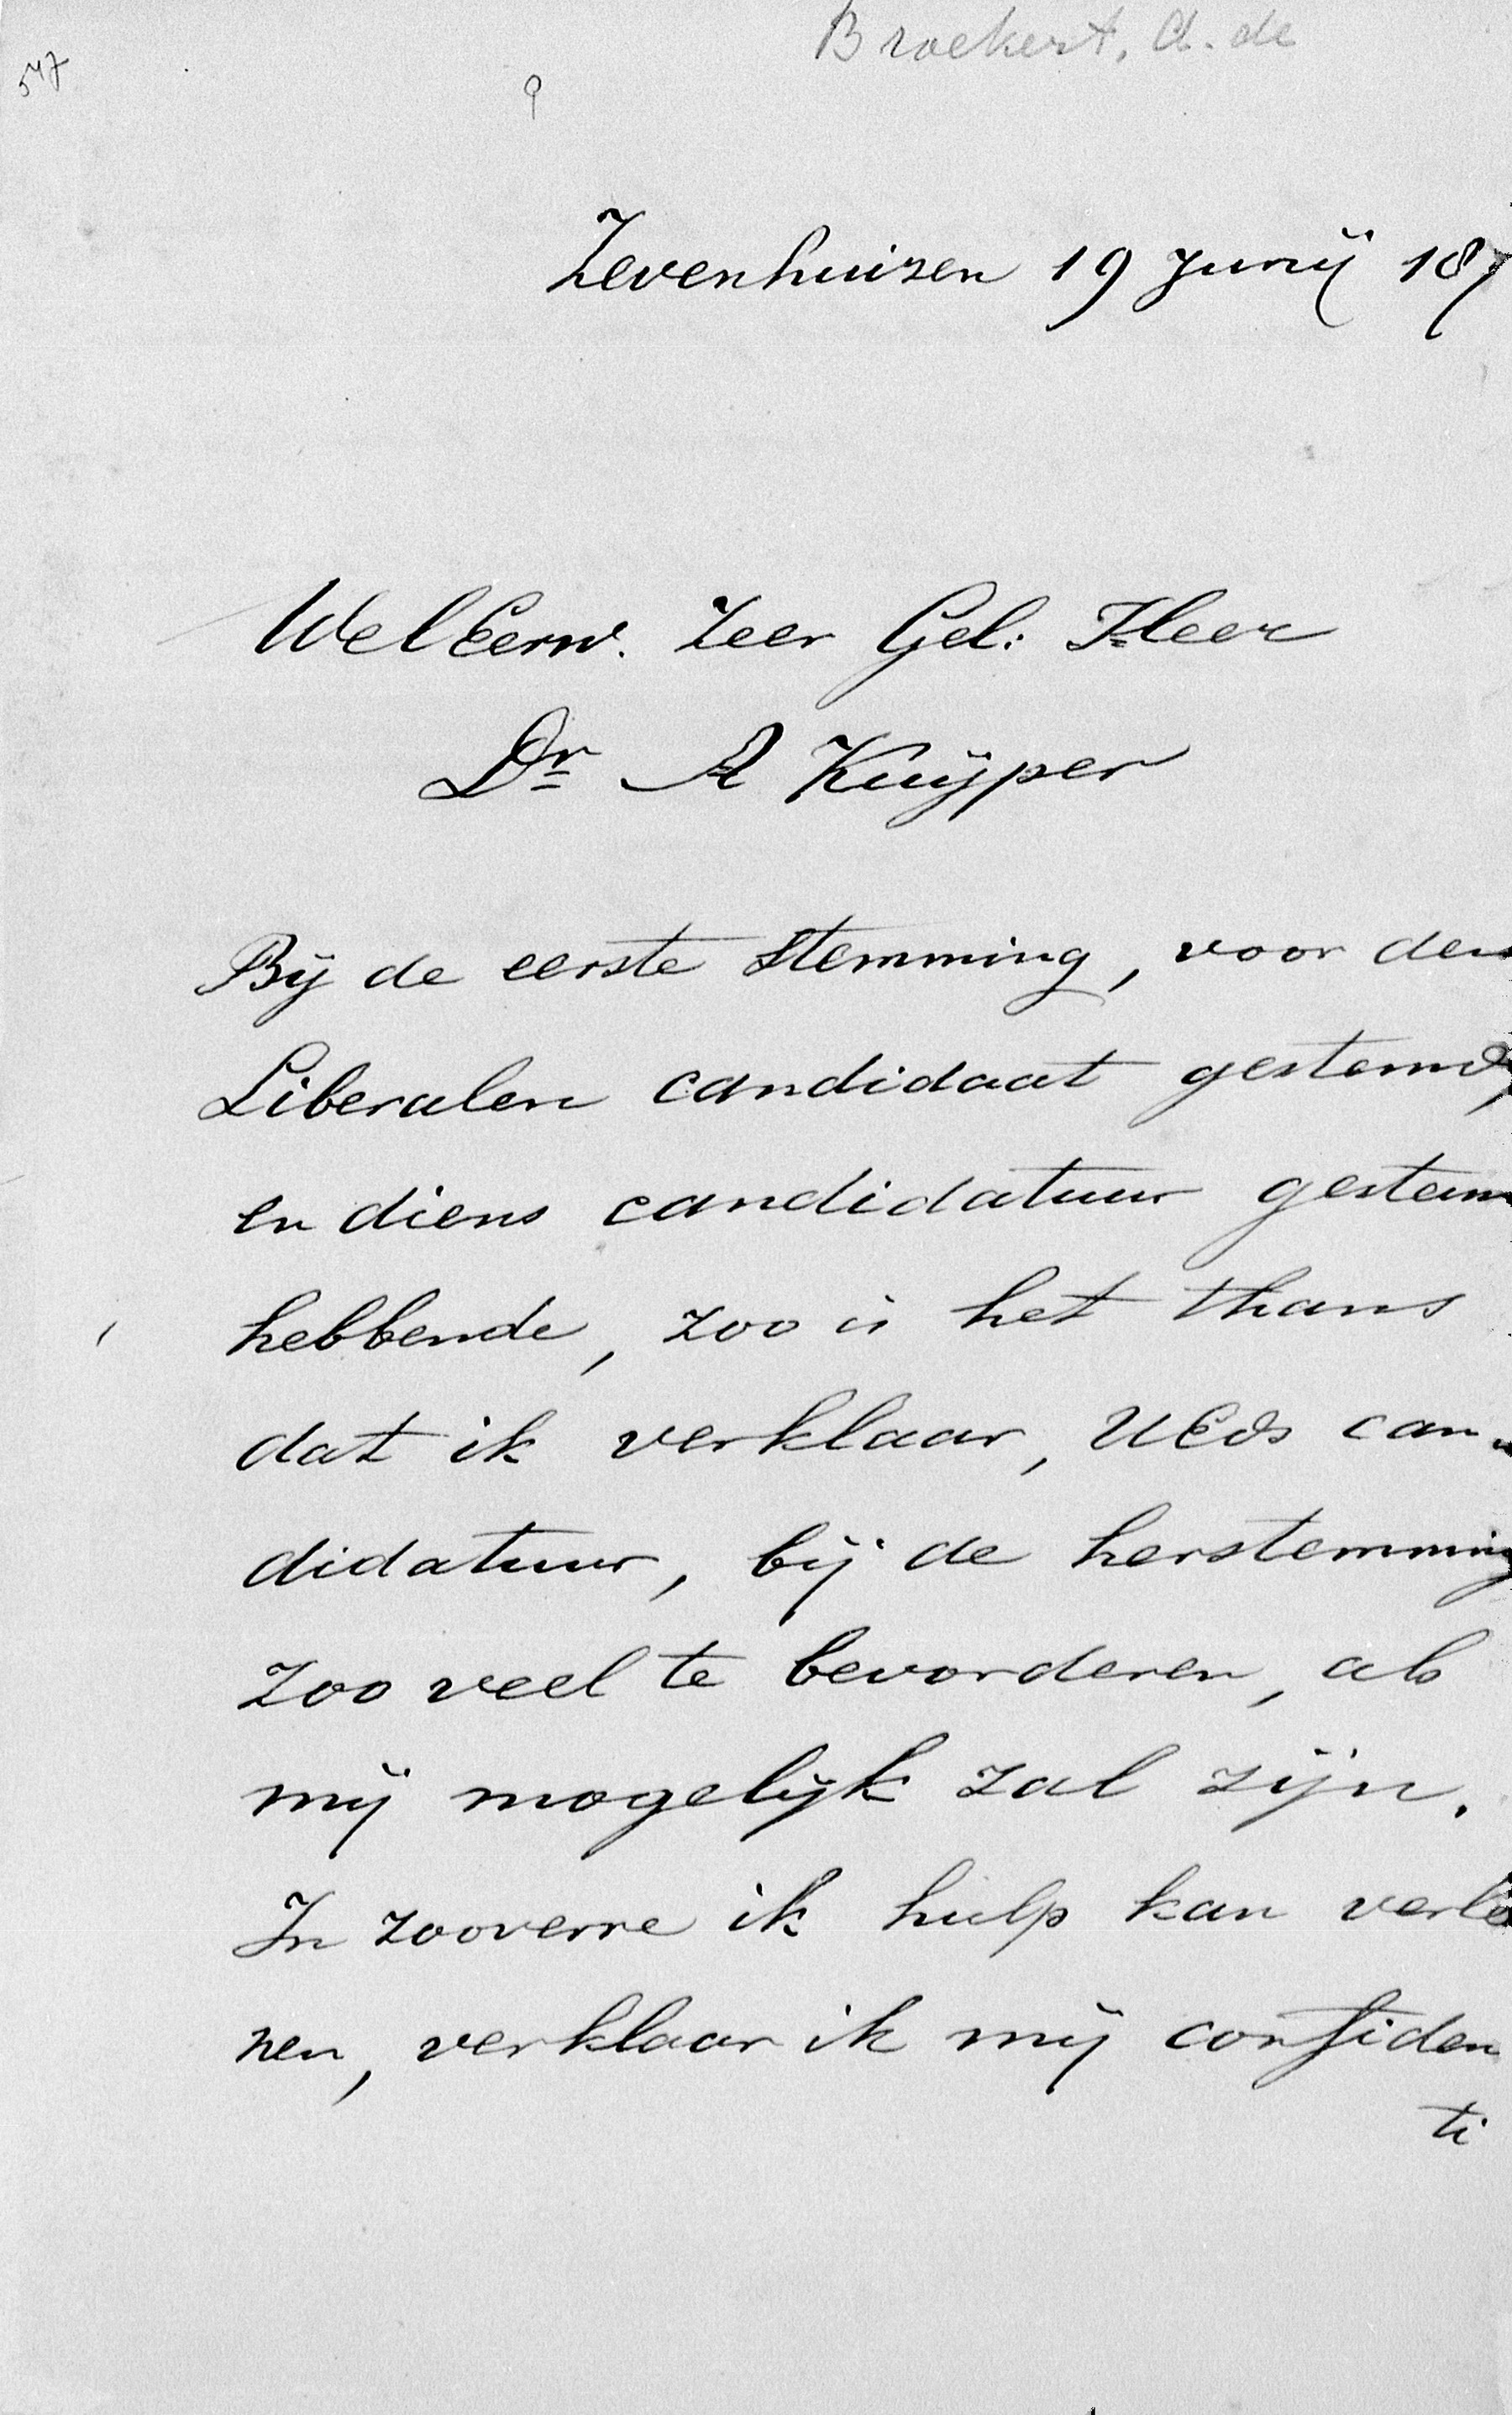 Broekert, A. de
547
9
Zevenhuizen 19 Junij 187
WelEerw. Zeer Gel: Heer
Dr A Kuÿper
Bij de eerste Stemming, voor den
Liberalen candidaat gestemd,
en diens candidatuur gesteun
hebbende, zoo is het thans
dat ik verklaar, UEds can-
didatuur, bij de herstemming
zoo veel te bevorderen, als
mij mogelijk zal zijn.
In zooverre ik hulp kan verle
nen, verklaar ik mij confiden
ti